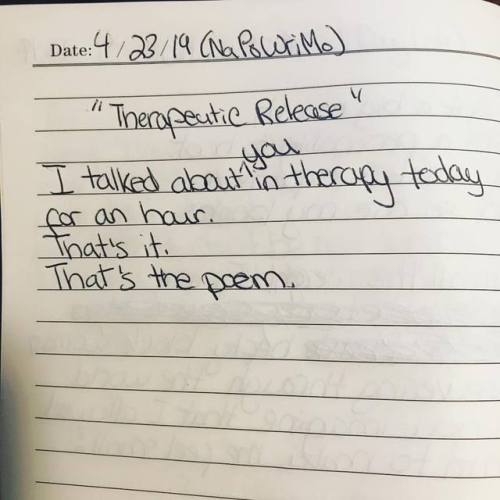 Date: 4/23/19 (NaPoWriMo)
"Therapeutic Release"
I talked about ^you in therapy today
for an hour.
That's it.
That's the poem.